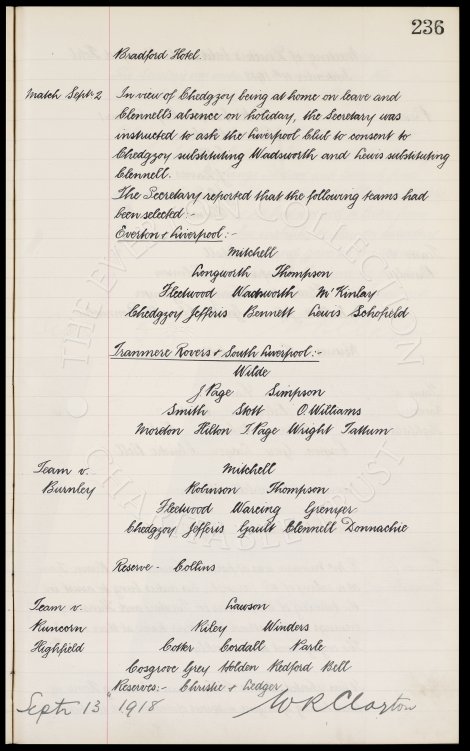 236
Bradford Hotel.
Match Sept. 2 In view of Chedgzoy being at home on leave and
Clennell's absence on holiday, the Secretary was
instructed to ask the Liverpool Club to consent to
Chedgzoy substituting Wadsworth and Lewis substituting
Clennell.
The Secretary reported that the following teams had
been selected:-
Everton & Liverpool:-
Mitchell
Longworth Thompson
Fleetwood Wadsworth McKinlay
Chedgzoy Jefferis Bennett Lewis Schofield
Tranmere Rovers & South Liverpool:-
Wilde
J Page Simpson
Smith Stott O. Williams
Moreton Hilton T. Page Wright Tattum
Team v. Mitchell
Burnley Robinson Thompson
Fleetwood Wareing Grenyer
Chedgzoy Jefferis Gault Clennell Donnachie
Reserve - Collins
Team v. Lawson
Runcorn Riley Winders
Highfield Cotter Cordall Parle
Cosgrove Grey Holden Redford Bell
Reserves:- Christie & Ledger
Septr 13" 1918 W R Clayton
THE EVERTON COLLECTION
CHARITABLE TRUST